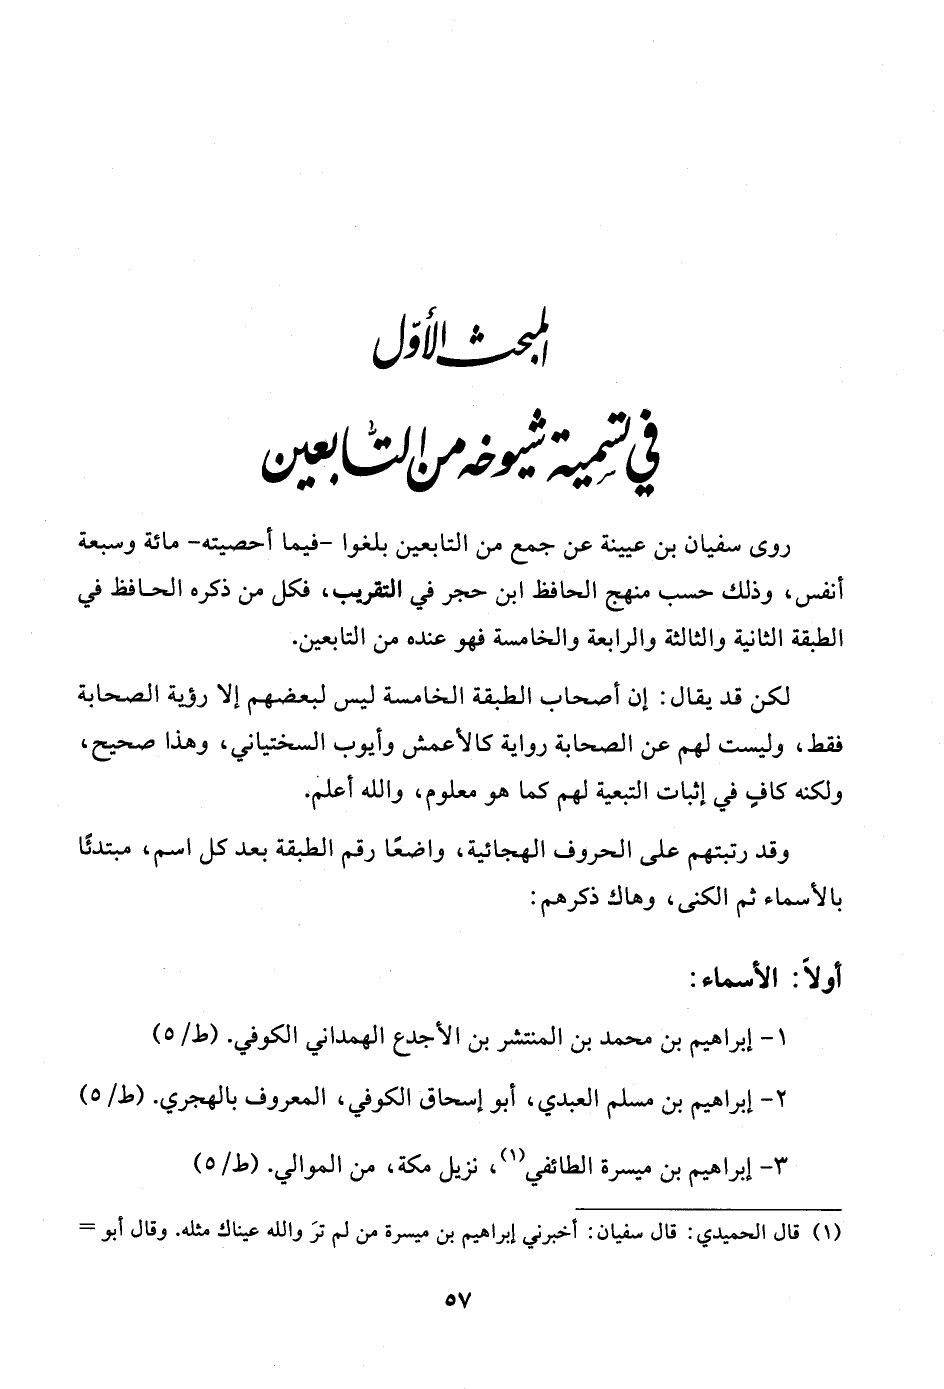 المبحث الأوّل
في تسمية شيوخه من التّابعين
روى سفيان بن عيينة عن جمع من التابعين بلغوا -فيما أحصيته- مائة وسبعة
أنفس، وذلك حسب منهج الحافظ ابن حجر في التقريب، فكل من ذكره الحافظ في
الطبقة الثانية والثالثة والرابعة والخامسة فهو عنده من التابعين.
لكن قد يقال: إن أصحاب الطبقة الخامسة ليس لبعضهم إلا رؤية الصحابة
فقط، وليست لهم عن الصحابة رواية كالأعمش وأيوب السختياني، وهذا صحيح،
ولكنه كافٍ في إثبات التبعية لهم كما هو معلوم، والله أعلم.
وقد رتبتهم على الحروف الهجائية، واضعًا رقم الطبقة بعد كل اسم، مبتدئًا
بالأسماء ثم الكنى، وهاك ذكرهم:
أولاً: الأسماء:
١- إبراهيم بن محمد بن المنتشر بن الأجدع الهمداني الكوفي. (ط/ ٥)
٢- إبراهيم بن مسلم العبدي، أبو إسحاق الكوفي، المعروف بالهجري. (ط/ ٥)
٣- إبراهيم بن ميسرة الطائفي(١)، نزيل مكة، من الموالي. (ط/ ٥)
(١) قال الحميدي: قال سفيان: أخبرني إبراهيم بن ميسرة من لم ترَ والله عيناك مثله. وقال أبو =
٥٧